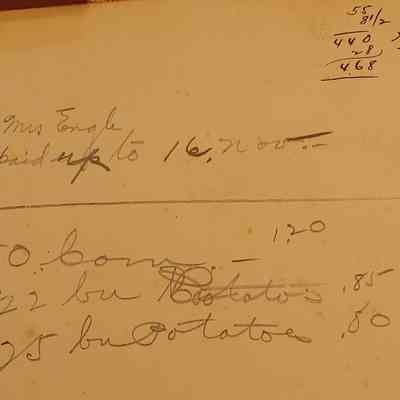 55
8 1/2
440
28
4.68
Mrs Engle
paid up to 16, Nov.-
1,20
0. Corn
22 bu Potatoes .85
75 bu Potatoes .80